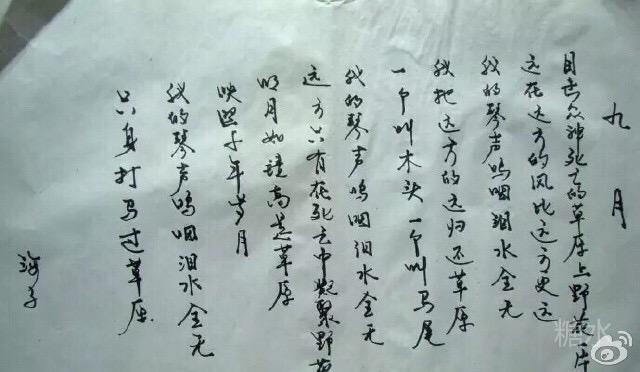 九月
目击众神死亡的草原上野花一片
远在远方的风比远方更远
我的琴声呜咽泪水全无
我把这远方的远归还草原
一个叫木头一个叫马尾
我的琴声呜咽泪水全无
远方只有在死亡中凝聚野花
明月如镜高悬草原
映照千年岁月
我的琴声呜咽泪水全无
只身打马过草原
海子
糖水